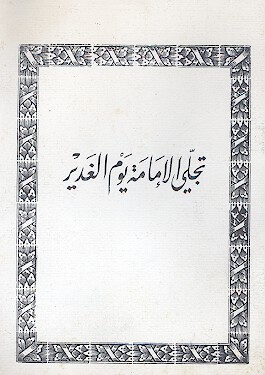 تجلّي الإمامة يَوْم الغَديْر